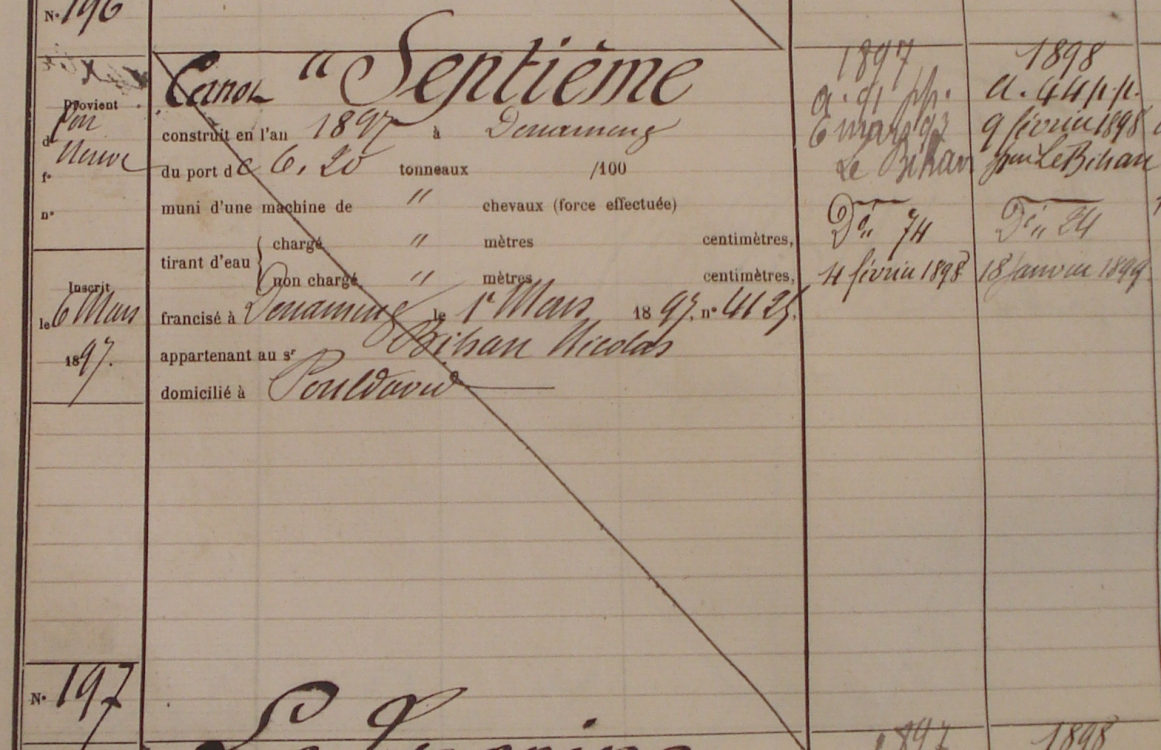 N° 196
Provient
d
Neuve
f°
n°
Inscrit
le 6 Mars
1897.
Canot " Septième
construit en l'an 1897 à Douarnenez
du port de 6, 20 tonneaux /100
muni d'une machine de " chevaux (force effectuée)
tirant d'eau { chargé " mètres centimètres,
non chargé " mètres centimètres,
francisé à Douarnenez le 1er Mars 1897. n° 4125.
appartenant au sr Bihan Nicolas
domicilié à Pouldavid
1897
a. 91 pp.
6 mars 97
Le Bihan
Dn 74
4 février 1898
1898
a. 44 p.p.
9 février 1898
pour Le Bihan
Dn 24
18 Janvier 1899
N° 197
1897
1898